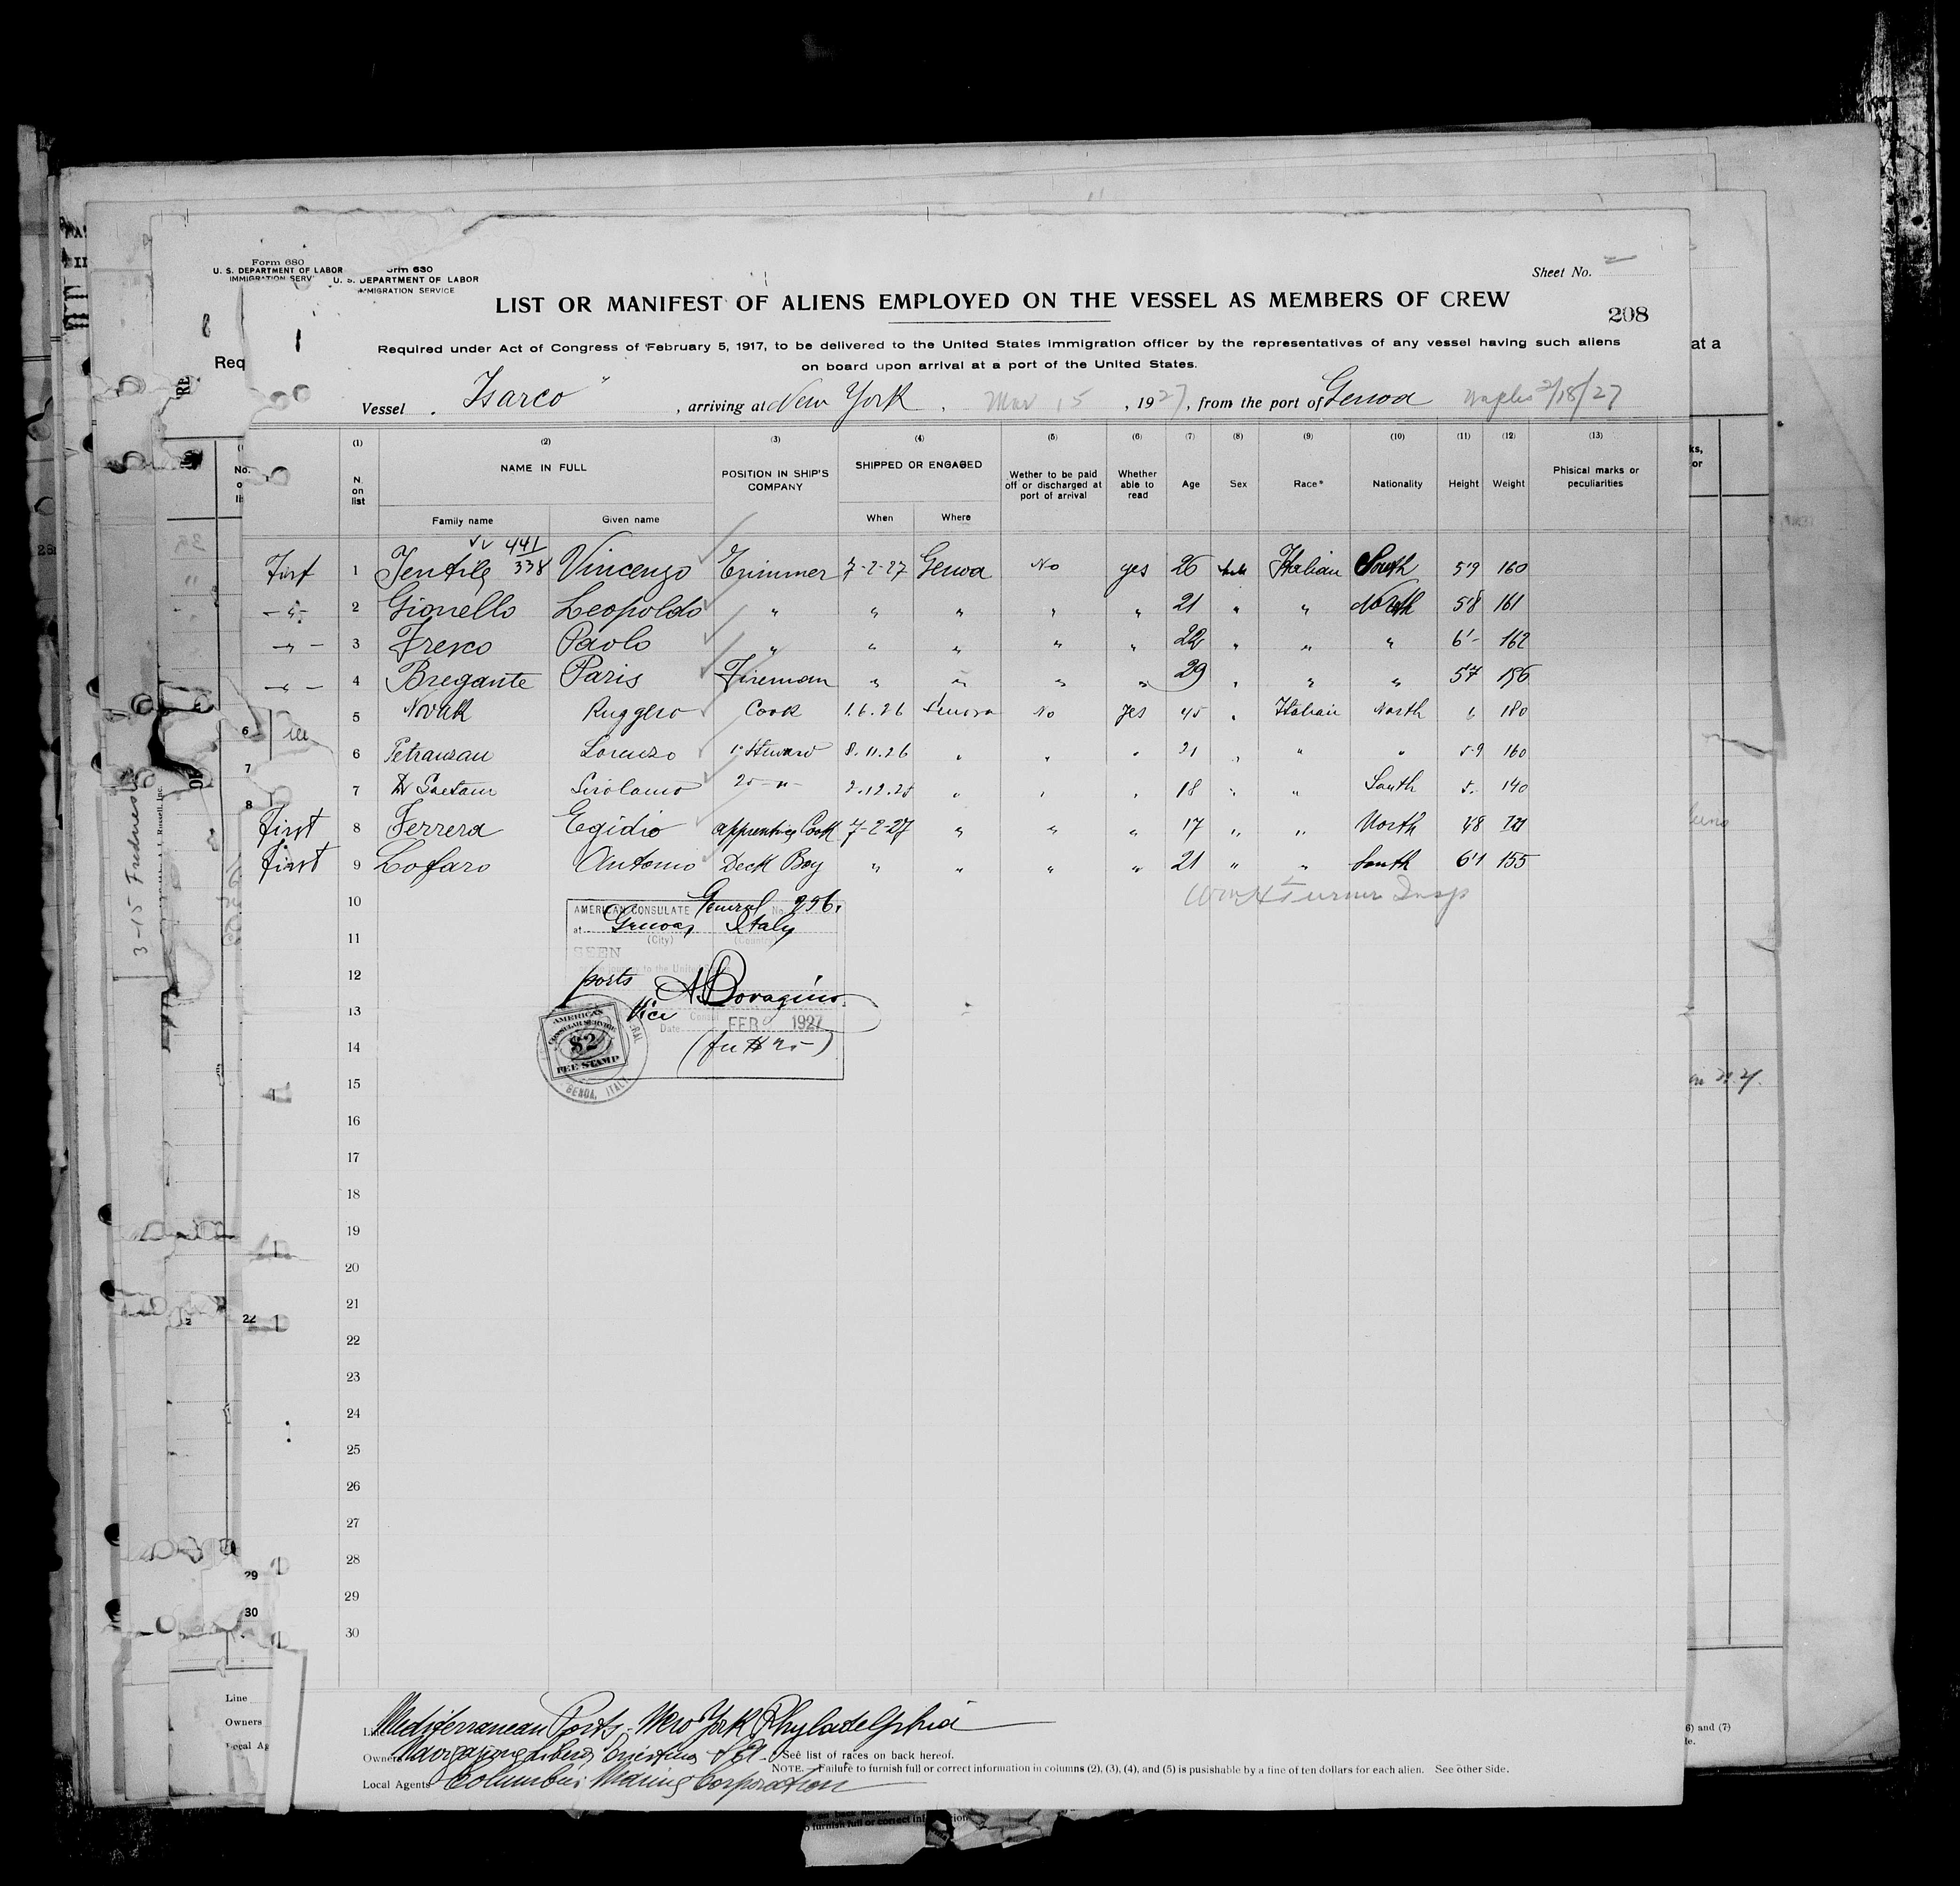 Form 680
U. S. DEPARTMENT OF LABOR
IMMIGRATION SERV
orm 630
U. S. DEPARTMENT OF LABOR
IMMIGRATION SERVICE
Sheet No.
LIST OR MANIFEST OF ALIENS EMPLOYED ON THE VESSEL AS MEMBERS OF CREW
208
Required under Act of Congress of February 5, 1917, to be delivered to the United States immigration officer by the representatives of any vessel having such aliens
on board upon arrival at a port of the United States.
Req
at a
Vessel Isarco , arriving at New York , Mar 15 , 1927, from the port of Genoa Naples 2/18/27
(1) (2) (3) (4) (5) (6) (7) (8) (9) (10) (11) (12) (13)
N on list NAME IN FULL POSITION IN SHIP'S COMPANY SHIPPED OR ENGAGED Wether to be paid off or discharged at port of arrival Whether able to read Age Sex Race* Nationality Height Weight Phisical marks or peculiarities
Family name Given name When Where
441
338
First 1 Gentile Vincenzo Trimmer 7-2-27 Genoa No yes 26 Italian South 5'9 160
-"- 2 Gionello Leopoldo " " " " " 21 " " North 5'8 161
-"- 3 Fresco Paolo " " " " " 22 " " " 6'- 162
-"- 4 Bregante Paris Fireman " " " " 29 " " " 57 156
5 Novak Ruggero Cook 1.6.26 Genova No yes 45 " Italian North 6 180
6 Lorenzo 1° Steward 8.11.26 " " " 21 " " " 5-9 160
7 De Gaetani Girolamo 2° -"- 2.12.25 " " " 18 " " South 5. 140
First 8 Ferrera Egidio apprentice Cook 7-2-27 " " " 17 " " North 48
First 9 Cofaro Antonio Deck Boy " " " " 21 " " South 6'1 155
10
Wm H Turner Insp
AMERICAN CONSULATE General No. 956.
at Genoa, Italy
(City) (Country)
11
SEEN
12
ports
Vice
13
Consul
Date FEB 1927
14
AMERICAN
CONSULAR SERVICE
$2
FEE STAMP
GENOA, ITALY
15
16
17
18
19
20
21
22
23
24
25
26
27
28
29
30
3-15
6
7
8
22
29
30
Line Mediterranean Ports - New York Phyladelphia
Owners Navigazione Libera Triestina
* See list of races on back hereof.
NOTE. — Failure to furnish full or correct information in columns (2), (3), (4), and (5) is pusishable by a fine of ten dollars for each alien. See other side.
Local Agents Columbus Marine Corporation
Line
Owners
Local Ag
6) and (7)